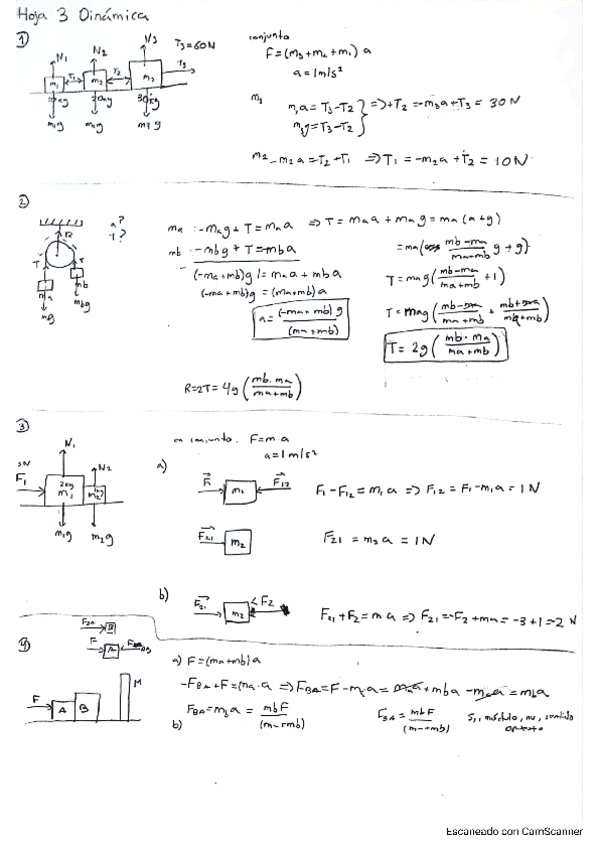 Hoja 3 Dinámica
①
N₁ N₂ N3 T₃=60N
m₁ T₁ m₂ T₂ m₃ T₃
20kg 30kg
m₁g m₂g m₃g
conjunto
F=(m₃+m₂+m₁) a
a=1m/s²
m₃
m₃a = T₃-T₂
m₃g=T₃-T₂
=>+T₂ = -m₃a+T₃ = 30N
m₂ - m₂a = T₂+T₁ => T₁ = -m₂a +T₂ = 10N
②
a?
T?
R
T T
ma mb
mg mbg
ma : -mag + T = maa => T = maa + mag = ma (a+g)
mb -mbg + T = mba
(-ma+mb)g = maa + mba
(-ma+mb)g = (ma+mb)a
a = (-ma+mb)g / (ma+mb)
= ma( mb-ma / ma+mb g + g)
T = mag ( mb-ma / ma+mb + 1)
T = mag ( mb-ma / ma+mb + mb+ma / mb+mb)
T = 2g ( mb·ma / ma+mb )
R=2T= 4g ( mb.ma / ma+mb )
③
N₁
3N
F₁ 2kg m₁ N2 m₂
m₁g m₂g
en conjunto. F=m·a
a=1m/s²
a)
F₁ m₁ F₁₂ F₁-F₁₂ = m₁a => F₁₂ = F₁-m₁a = 1N
F₂₁ m₂ F₂₁ = m₂a = 1N
b)
F₂₁ m₂ F2 F₂₁+F₂ = ma => F₂₁ = -F₂+ma = -3+1=-2 N
④
FBA B
F A
F A B M
a) F=(ma+mb)a
-FBA+F=(ma·a => FBA = F-m a = maa + mba - maa = mba
FBA = m a = mbF / (m+mb)
b)
FBA = mbF / (m+mb) Sí, módulo, sentido opuesto
Escaneado con CamScanner